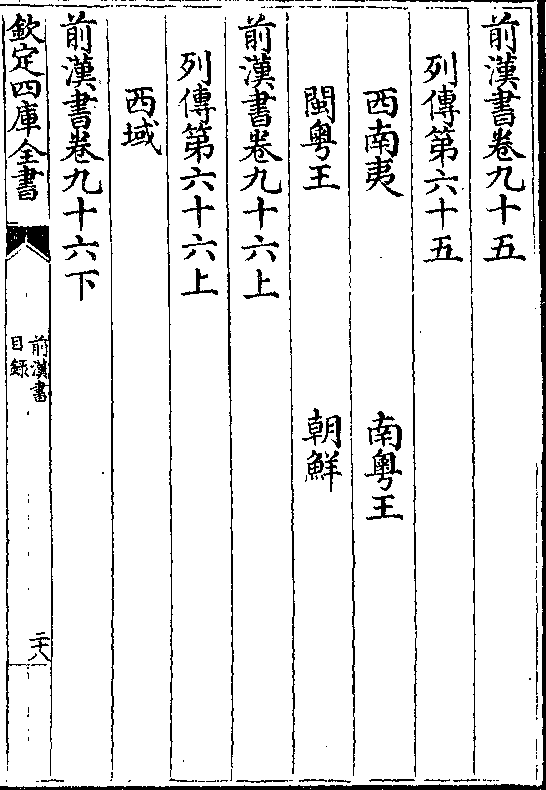 前漢書卷九十五
列傳第六十五
西南夷 南粤王
閩粤王 朝鮮
前漢書卷九十六上
列傳第六十六上
西域
前漢書卷九十六下
欽定四庫全書
前漢書
目録
二十八